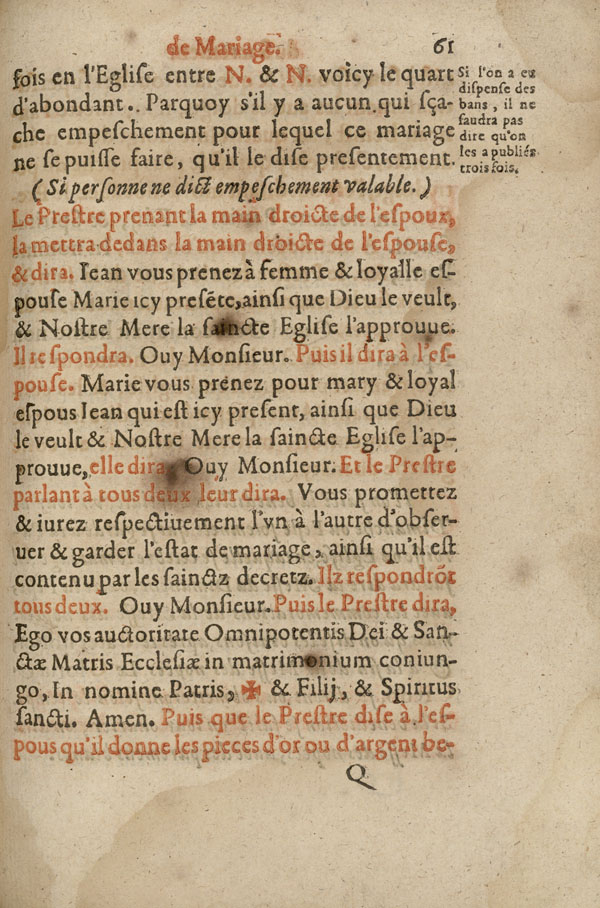 de Mariage. 61
fois en l'Eglise entre N. & N. voicy le quart
d'abondant.. Parquoy s'il y a aucun qui sça-
che empeschement pour lequel ce mariage
ne se puisse faire, qu'il le dise presentement.
Si l'on a eu
dispense des
bans, il ne
faudra pas
dire qu'on
les a publiés
trois fois.
(Si personne ne dict empeschement valable.)
Le Prestre prenant la main droicte de l'espoux,
la mettra dedans la main droicte de l'espouse,
& dira. Iean vous prenez à femme & loyalle es-
pouse Marie icy presẽte, ainsi que Dieu le veult,
& Nostre Mere la saincte Eglise l'approuue.
Il respondra. Ouy Monsieur. Puis il dira à l'es-
pouse. Marie vous prenez pour mary & loyal
espous Iean qui est icy present, ainsi que Dieu
le veult & Nostre Mere la saincte Eglise l'ap-
prouue, elle dira. Ouy Monsieur. Et le Prestre
parlant à tous deux leur dira. Vous promettez
& iurez respectiuement l'vn à l'autre d'obser-
uer & garder l'estat de mariage, ainsi qu'il est
contenu par les sainctz decretz. Ilz respondrõt
tous deux. Ouy Monsieur. Puis le Prestre dira,
Ego vos auctoritate Omnipotentis Dei & San-
ctæ Matris Ecclesiæ in matrimonium coniun-
go, In nomine Patris, ✠ & Filij, & Spiritus
sancti. Amen. Puis que le Prestre dise à l'es-
pous qu'il donne les pieces d'or ou d'argent be-
Q